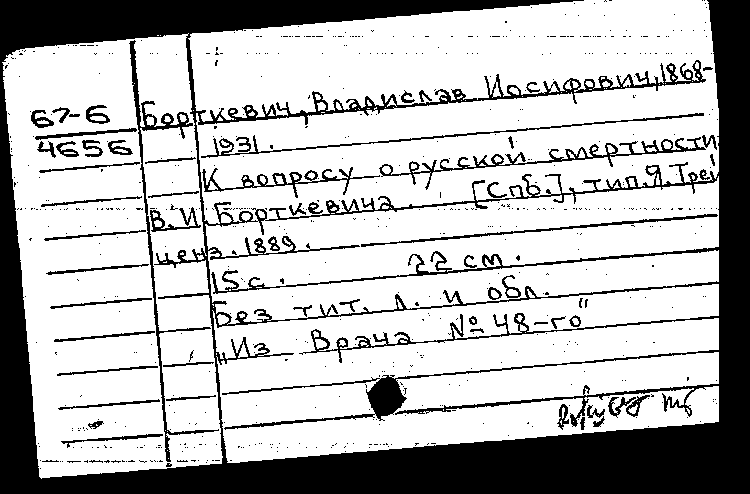 67-6
4656
Борткевич, Владислав Иосифович, 1868-
1931.
К вопросу о русской смертности
В. И. Борткевича. [Спб.], тип. Я. Трей
ценз. 1889.
15 с. 22 см.
Без тит. л. и обл.
„Из Врача № 48-го"